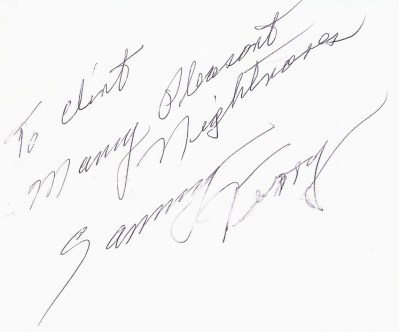 To Clint
Many Pleasant
Nightmares
Sammy Terry